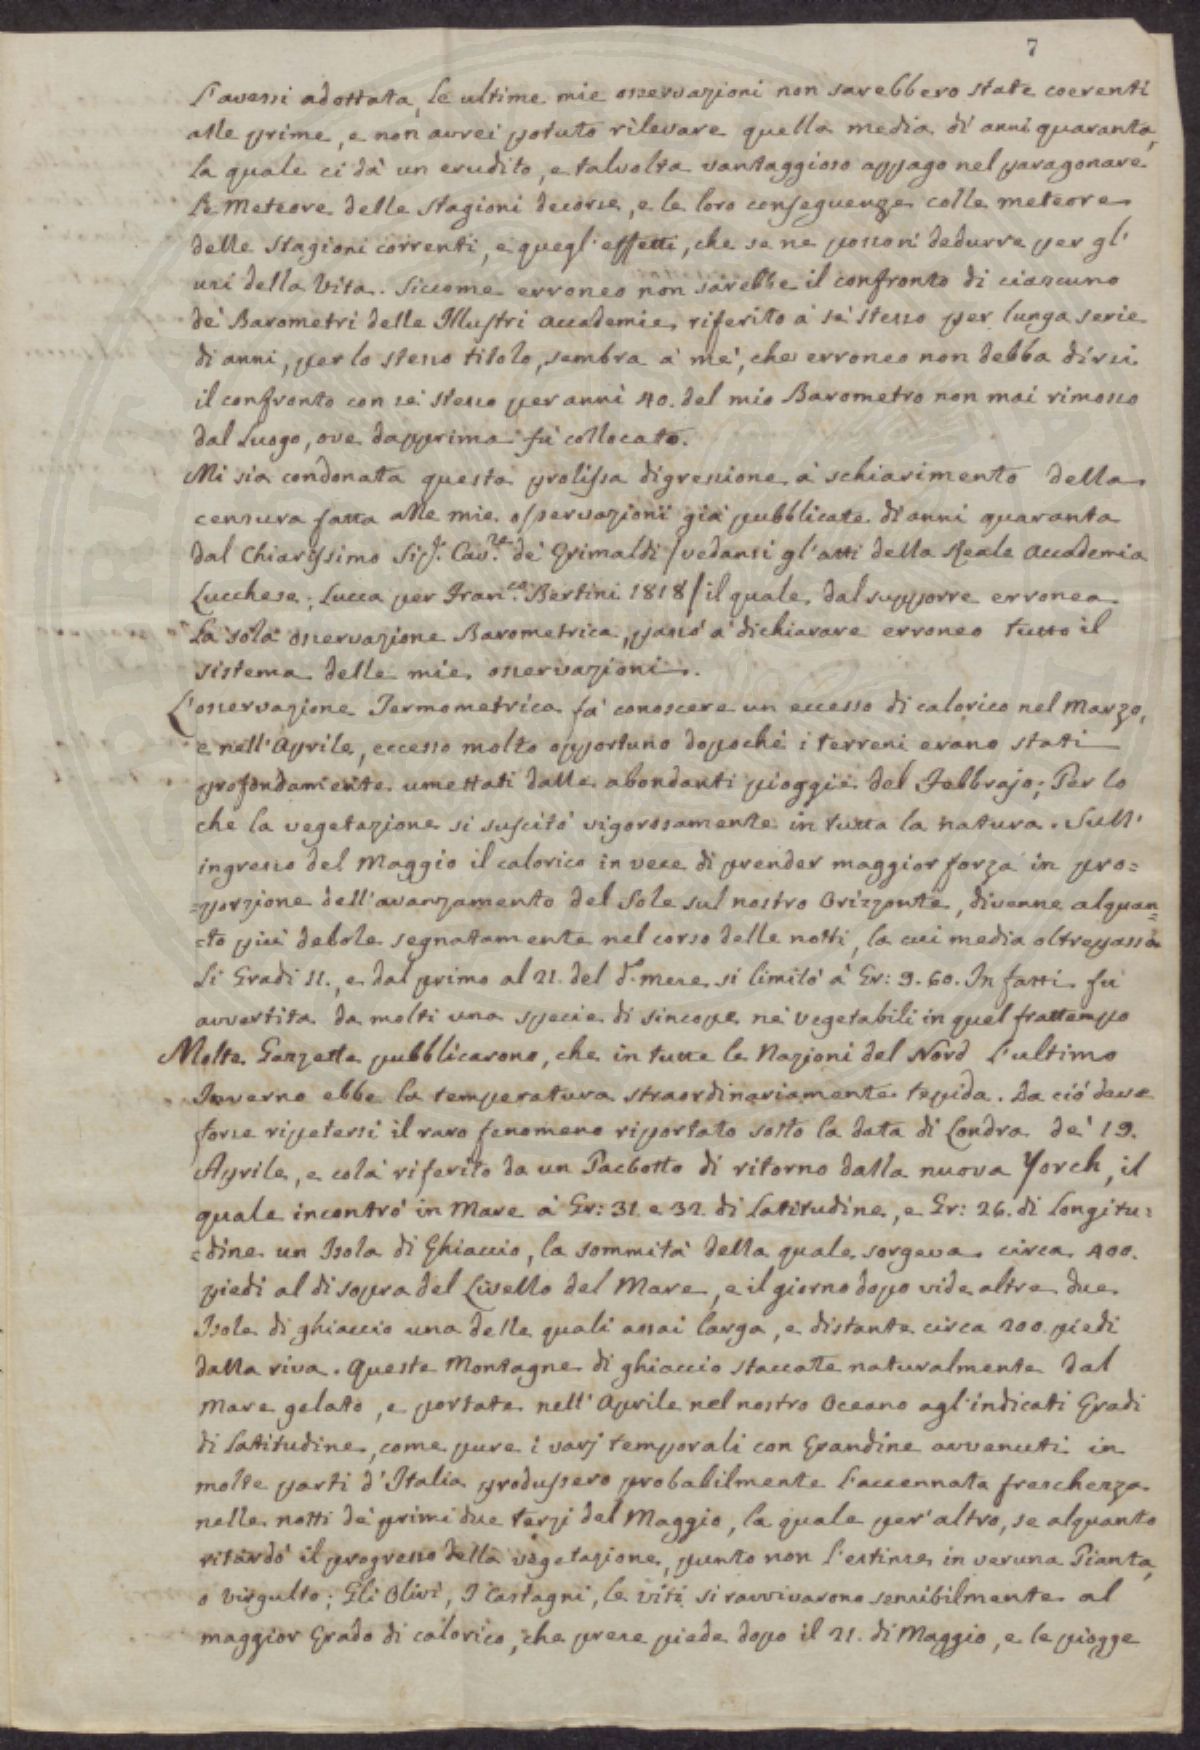 7
l'avessi adottata, le ultime mie osservazioni non sarebbero state coerenti
alle prime, e non avrei potuto rilevare quella media di anni quaranta,
la quale ci dà un erudito, e talvolta vantaggioso appago nel paragonare
le Meteore delle Stagioni decorse, e le loro conseguenze colle meteore
delle Stagioni correnti, e quegl'effetti, che se ne possoni dedurre per gl'
usi della Vita. Siccome erroneo non sarebbe il confronto di ciascuno
de' Barometri delle Illustri Accademie, riferito à sè stesso per lunga serie
di anni, per lo stesso titolo, sembra à me, che erroneo non debba dirsi
il confronto con sè stesso per anni 40. del mio Barometro non mai rimosso
dal luogo, ove dapprima fù collocato.
Mi sia condonata questa prolissa digressione à schiarimento della
censura fatta alle mie osservazioni già pubblicate di anni quaranta
dal Chiarissimo Sig.r Cav.re de' Grimaldi / vedansi gl'atti della Reale Accademia
Lucchese; Lucca per Fran.co Bertini 1818 / il quale, dal supporre erronea
la sola osservazione Barometrica, passò à dichiarare erroneo tutto il
sistema delle mie osservazioni.
L'osservazione Termometrica fà conoscere un eccesso di calorico nel Marzo,
e nell'Aprile, eccesso molto opportuno dopochè i terreni erano stati
profondamente umettati dalle abondanti pioggie del Febbrajo; Per lo
che la vegetazione si suscitò vigorosamente in tutta la natura. Sull'
ingresso del Maggio il calorico in vece di prender maggior forza in pro=
=porzione dell'avanzamento del Sole sul nostro Orizzonte, divenne alquan=
=to più debole segnatamente nel corso delle notti, la cui media oltrepassa
li Gradi 11., e dal primo al 21. del d.o mese si limitò à Gr: 9. 60. In fatti fù
avvertita da molti una specie di sincope ne' vegetabili in quel frattempo
Molte Gazzette pubblicarono, che in tutte le Nazioni del Nord l'ultimo
Inverno ebbe la temperatura straordinariamente tepida. Da ciò deve
forse ripetersi il raro fenomeno riportato sotto la data di Londra de' 19.
Aprile, e colà riferito da un Pacbotto di ritorno dalla nuova Yorch, il
quale incontrò in Mare à Gr: 31. e 32. di Latitudine, e Gr: 26. di Longitu=
=dine un Isola di Ghiaccio, la sommità della quale sorgeva circa 400.
piedi al di sopra del Livello del Mare, e il giorno dopo vide altre due
Isole di ghiaccio una delle quali assai larga, e distante circa 200. piedi
dalla riva. Queste Montagne di ghiaccio staccate naturalmente dal
Mare gelato, e portate nell'Aprile nel nostro Oceano agl'indicati Gradi
di Latitudine, come pure i varj temporali con Grandine avvenuti in
molte parti d'Italia produssero probabilmente l'accennata freschezza
nelle notti de' primi due terzi del Maggio, la quale per altro, se alquanto
ritardò il progresso della vegetazione, punto non l'estinse in veruna Pianta,
o Virgulto; Gli Olivi, I Castagni, le viti si ravvivarono sensibilmente al
maggior Grado di calorico, che prese piede dopo il 21. di Maggio, e le piogge